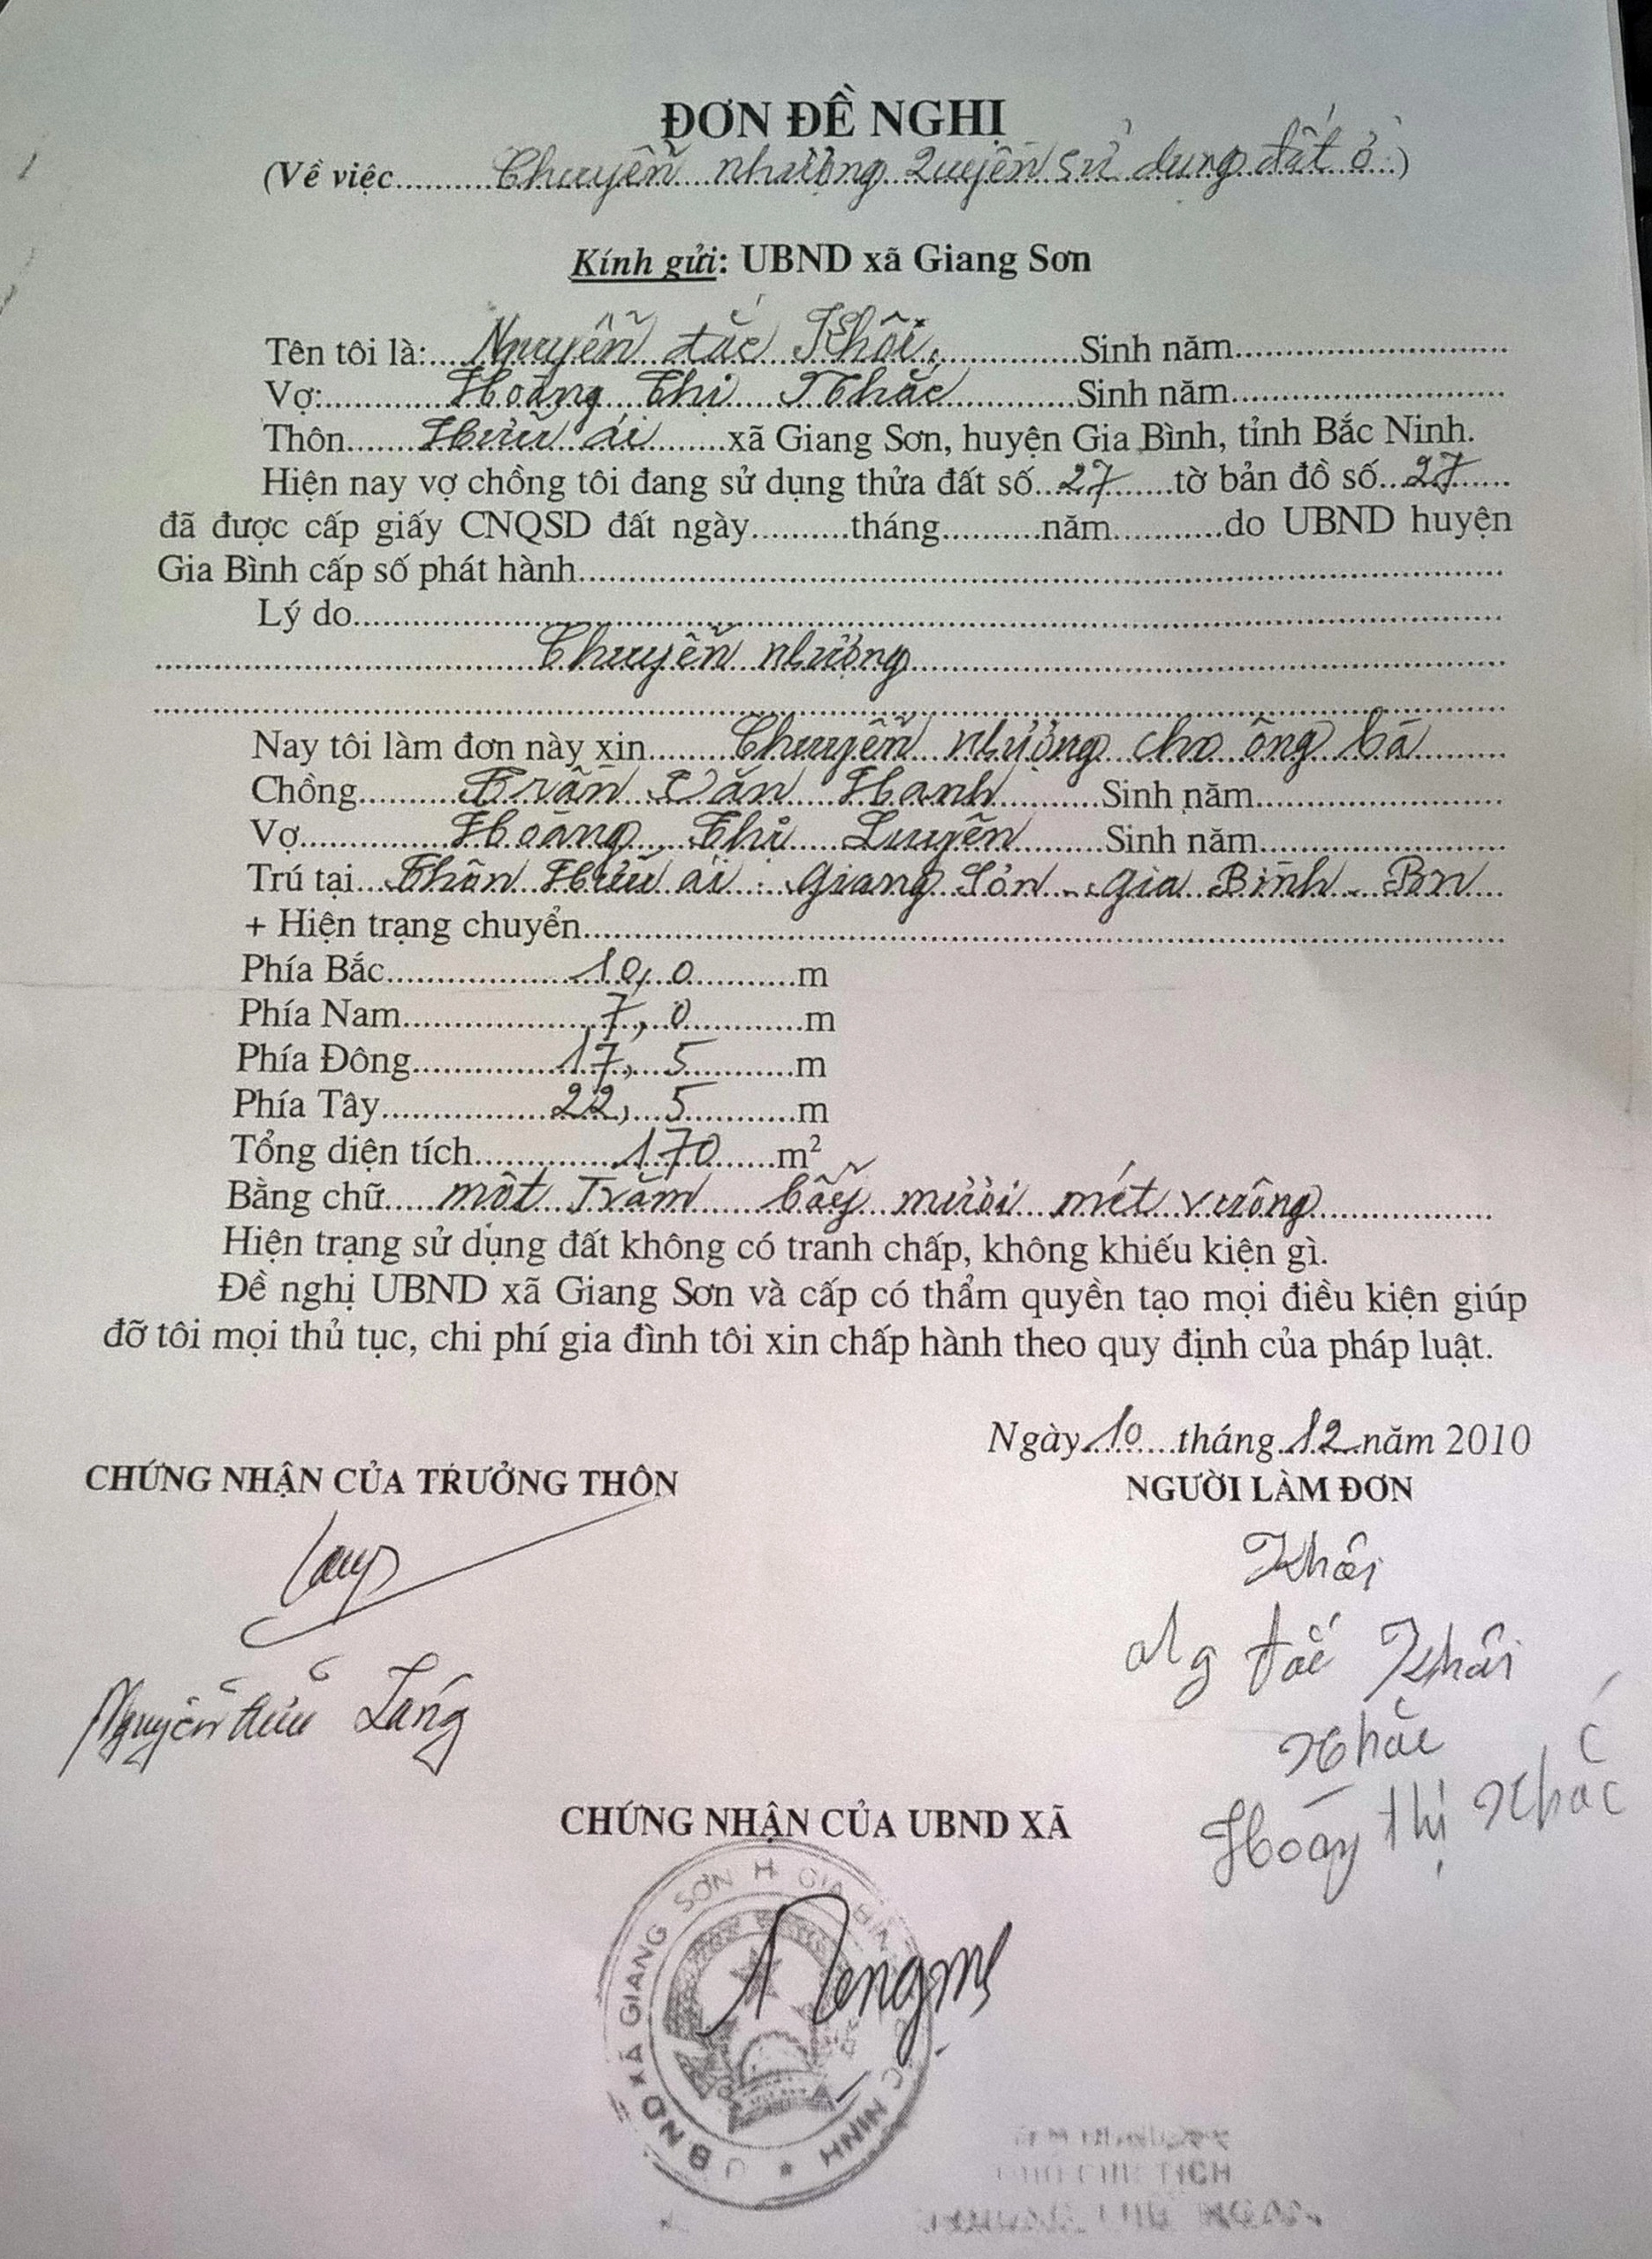 ĐƠN ĐỀ NGHỊ
(Về việc..........Chuyển nhượng Quyền sử dụng đất ở.)
Kính gửi: UBND xã Giang Sơn
Tên tôi là:....Nguyễn đắc Khôi..............Sinh năm..............................
Vợ:............Hoàng Thị Nhắc.............Sinh năm..............................
Thôn.......Hữu ái........xã Giang Sơn, huyện Gia Bình, tỉnh Bắc Ninh.
Hiện nay vợ chồng tôi đang sử dụng thửa đất số...27.......tờ bản đồ số...27......
đã được cấp giấy CNQSD đất ngày..........tháng..........năm...........do UBND huyện
Gia Bình cấp số phát hành..............................
Lý do..............................
..............................Chuyển nhượng..............................
............................................................
Nay tôi làm đơn này xin........Chuyển nhượng cho ông bà........
Chồng..........Trần Văn Hanh..........Sinh năm..............................
Vợ...............Hoàng Thị Luyện.........Sinh năm..............................
Trú tại...Thôn Hữu ái - Giang Sơn - Gia Bình - BN...
+ Hiện trạng chuyển..............................
Phía Bắc..................10,0............m
Phía Nam...................7,0............m
Phía Đông..............17,5...........m
Phía Tây................22,5...........m
Tổng diện tích..............170.......m²
Bằng chữ.....một Trăm bẩy mười mét vuông..................
Hiện trạng sử dụng đất không có tranh chấp, không khiếu kiện gì.
Đề nghị UBND xã Giang Sơn và cấp có thẩm quyền tạo mọi điều kiện giúp
đỡ tôi mọi thủ tục, chi phí gia đình tôi xin chấp hành theo quy định của pháp luật.
Ngày..10....tháng..12..năm 2010
CHỨNG NHẬN CỦA TRƯỞNG THÔN
NGƯỜI LÀM ĐƠN
Khôi
Ng đắc Khôi
Nguyễn Hữu Lang
Nhắc
Hoàng Thị Nhắc
CHỨNG NHẬN CỦA UBND XÃ
UBND XÃ GIANG SƠN H GIA BÌNH BẮC NINH
TỊCH